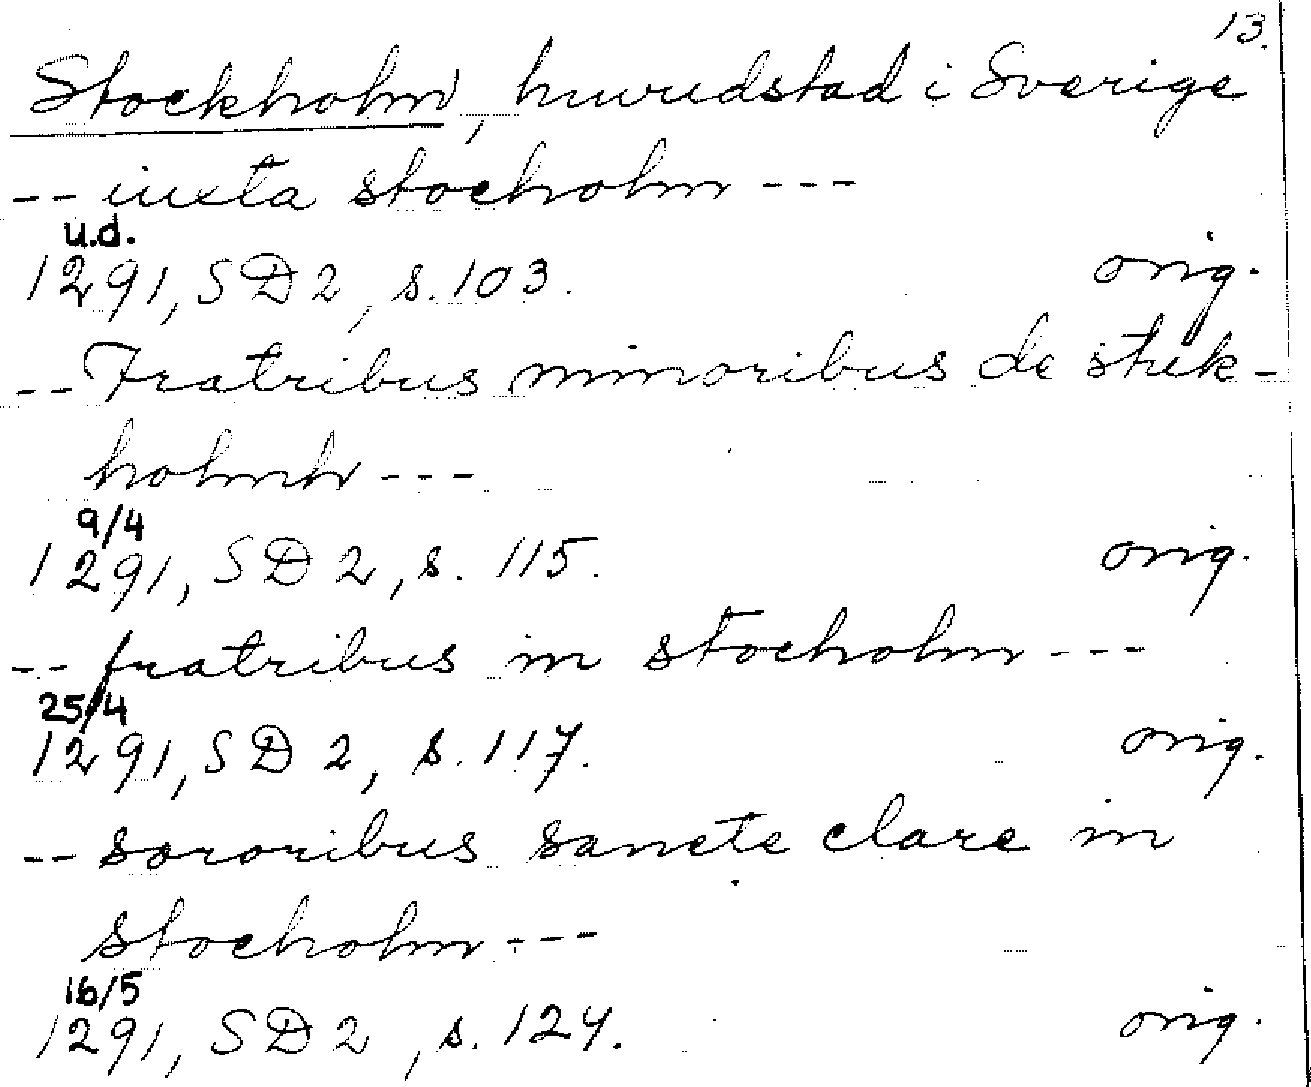 13.
Stockholm, huvudstad i Sverige
-- iuxta stocholm ---
u.d.
1291, SD 2, s. 103. orig.
-- Fratribus minoribus de stuk-
holmh ---
9/4
1291, SD 2, s. 115. orig.
-- fratribus in stocholm ---
25/4
1291, SD 2, s. 117. orig.
-- sororibus sancte clare in
stocholm ---
16/5
1291, SD 2, s. 124. orig.